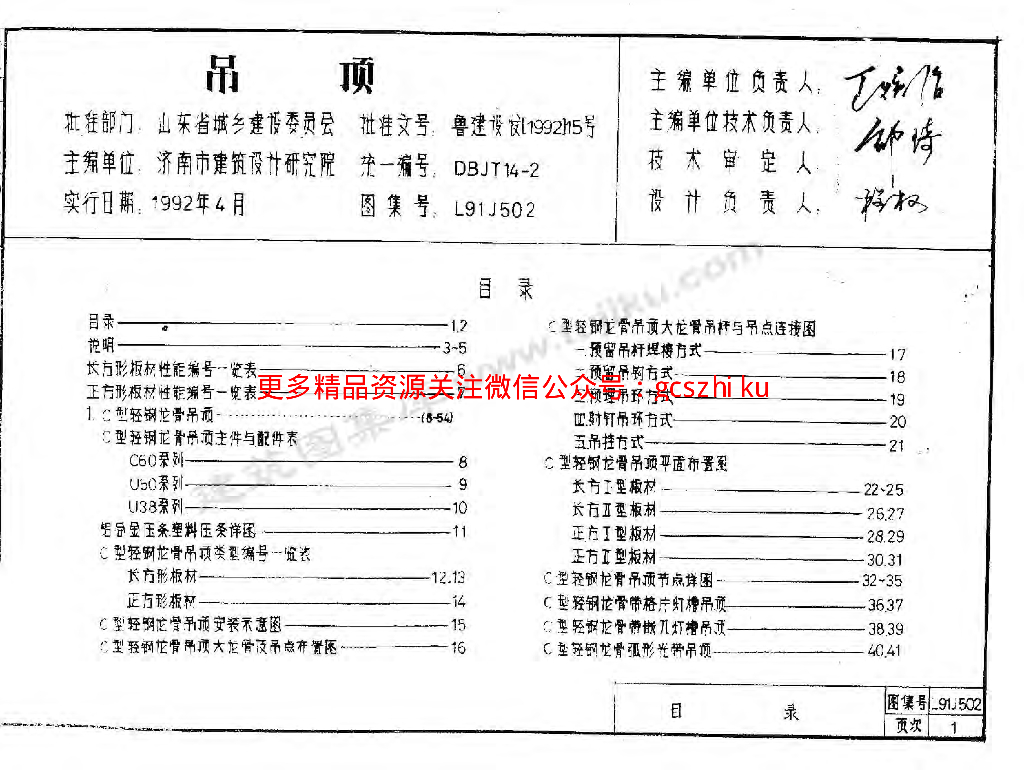 吊 顶
批准部门: 山东省城乡建设委员会 批准文号: 鲁建设发[1992]15号
主编单位: 济南市建筑设计研究院 统一编号: DBJT14-2
实行日期: 1992年4月 图集号: L91J502
主编单位负责人:
主编单位技术负责人:
技术审定人:
设计负责人:
目 录
目录 1,2
说明 3~5
长方形板材性能编号一览表 6
正方形板材性能编号一览表
1. C型轻钢龙骨吊顶 (8-54)
C型轻钢龙骨吊顶主件与配件表
C60系列 8
U50系列 9
U38系列 10
铝合金压条塑料压条详图 11
C型轻钢龙骨吊顶类型编号一览表
长方形板材 12,13
正方形板材 14
C型轻钢龙骨吊顶安装示意图 15
C型轻钢龙骨吊顶大龙骨及吊点布置图 16
C型轻钢龙骨吊顶大龙骨吊杆与吊点连接图
一.预留吊杆焊接方式 17
二.预留吊钩方式 18
三.预埋吊环方式 19
四.射钉吊环方式 20
五.吊挂方式 21
C型轻钢龙骨吊顶平面布置图
长方I型板材 22~25
长方II型板材 26,27
正方I型板材 28,29
正方II型板材 30,31
C型轻钢龙骨吊顶节点详图 32~35
C型轻钢龙骨带格片灯槽吊顶 36,37
C型轻钢龙骨带嵌孔灯槽吊顶 38,39
C型轻钢龙骨弧形光带吊顶 40,41
更多精品资源关注微信公众号:gcszhi ku
目 录
图集号 L91J502
页次 1